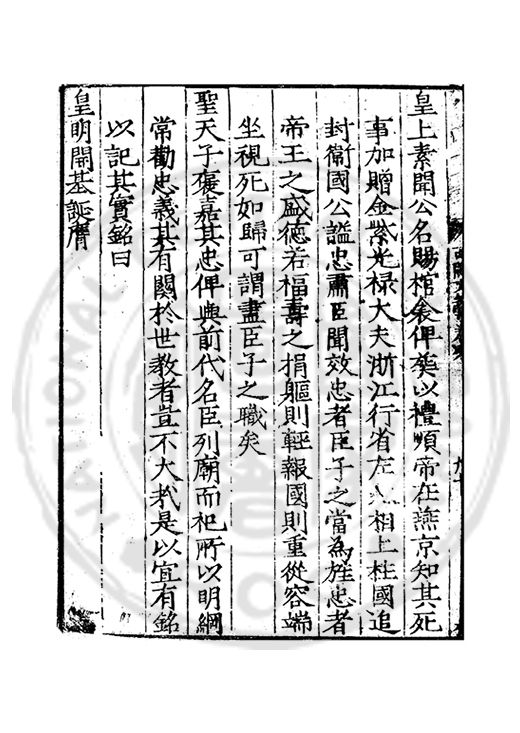 皇上素聞公名賜棺衾俾葬以禮順帝在燕京知其死
事加贈金紫光祿大夫浙江行省左丞相上柱國追
封衛國公謚忠肅臣聞效忠者臣子之當為旌忠者
帝王之盛德若福壽之捐軀則輕報國則重從容端
坐視死如歸可謂盡臣子之職矣
聖天子褒嘉其忠俾與前代名臣列廟而祀所以明綱
常勸忠義其有關於世教者豈不大哉是以宜有銘
以記其實銘曰
皇明開基誕膺